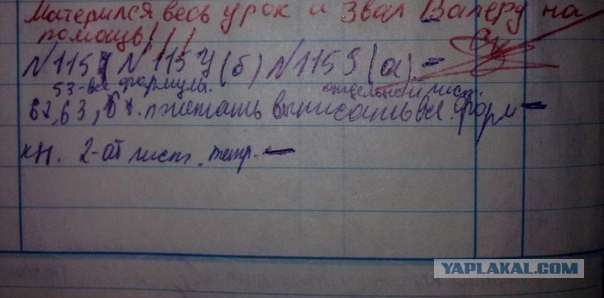 Матерился весь урок и звал Валеру на
помощь!!!
N1157 N1157 (б) N1159 (а) -
53-все формулы. отдельный лист.
62, 63, выписать все форм -
кн. 2-ой лист. тетр. -
YAPLAKAL.COM